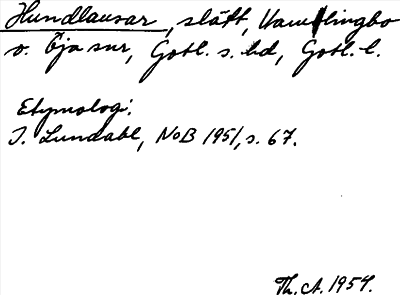 Hundlausar, slätt, Vamlingbo
o. Öja snr, Gotl. s. hd, Gotl. l.
Etymologi:
I. Lundahl, NoB 1951, s. 67.
Th. A. 1954.